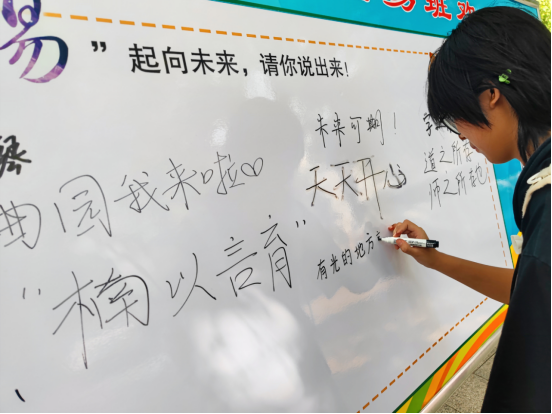 班欢
易
”起向未来，请你说出来!
未来可期！
天天开心
曲园我来啦♡
“楠以言育”
有光的地方
道之所存
师之所存也